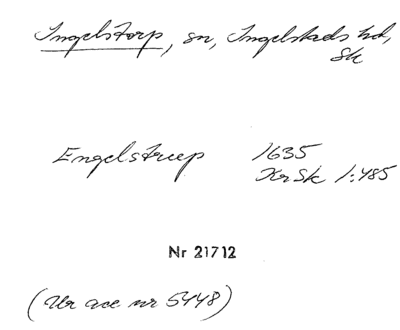 Ingelstorp, sn, Ingelstads hd,
Sk
Engelstrup 1635
KrSk 1:485
Nr 21712
(Ur acc nr 5448)